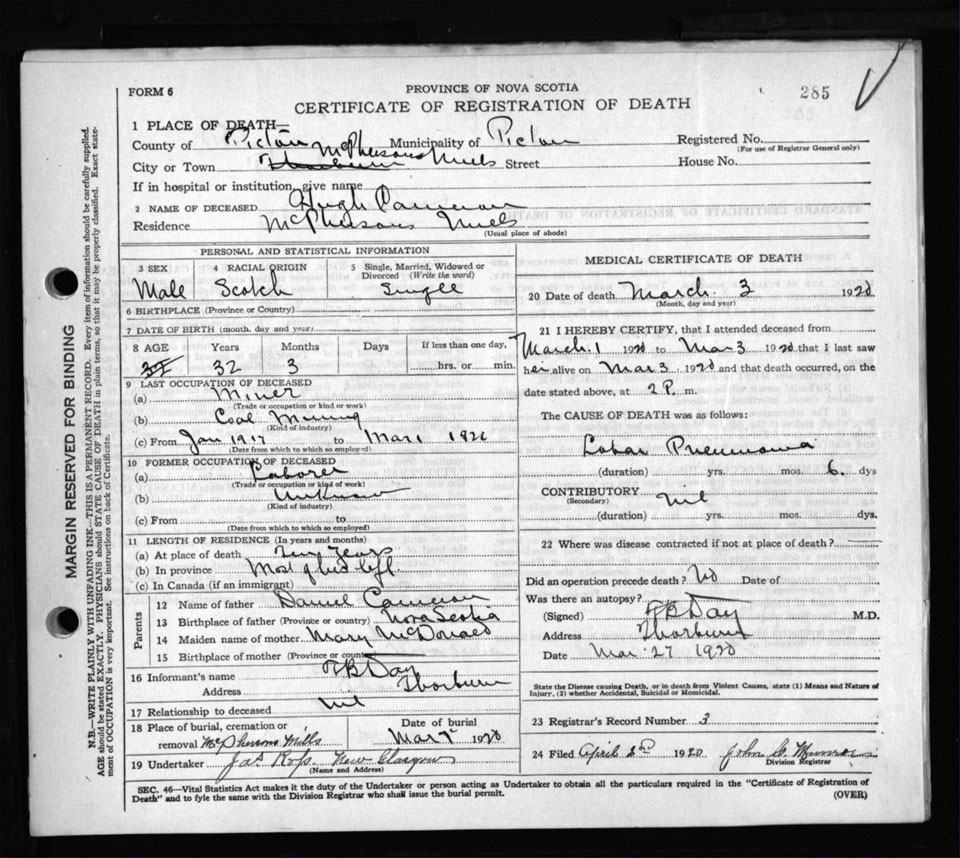 FORM 6
PROVINCE OF NOVA SCOTIA
285
CERTIFICATE OF REGISTRATION OF DEATH
1 PLACE OF DEATH—
County of Pictou Municipality of Pictou Registered No.
(For use of Registrar General only)
City or Town Thorburn McPhersons Mills Street House No.
If in hospital or institution, give name
2 NAME OF DECEASED Hugh Cameron
Residence McPhersons Mills
(Usual place of abode)
PERSONAL AND STATISTICAL INFORMATION
3 SEX 4 RACIAL ORIGIN 5 Single, Married, Widowed or Divorced (Write the word)
Male Scotch Single
6 BIRTHPLACE (Province or Country)
7 DATE OF BIRTH (month, day and year)
8 AGE Years Months Days If less than one day,
32 3 hrs. or min.
9 LAST OCCUPATION OF DECEASED
(a) Miner
(Trade or occupation or kind or work)
(b) Coal Mining
(Kind of industry)
(c) From Jan 1917 to Mar 1
(Date from which to which so employed)
10 FORMER OCCUPATION OF DECEASED
(a) Laborer
(Trade or occupation or kind of work)
(b) Unknown
(Kind of industry)
(c) From to
(Date from which to which so employed)
11 LENGTH OF RESIDENCE (In years and months)
(a) At place of death Years
(b) In province Most of his life
(c) In Canada (if an immigrant)
Parents
12 Name of father Daniel Cameron
13 Birthplace of father (Province or country) Nova Scotia
14 Maiden name of mother Mary McDonald
15 Birthplace of mother (Province or country)
16 Informant's name F B Day
Address Thorburn
17 Relationship to deceased nil
18 Place of burial, cremation or removal McPhersons Mills
Date of burial
Mar 1920
19 Undertaker Jas Ross New Glasgow
(Name and Address)
MEDICAL CERTIFICATE OF DEATH
20 Date of death March 3 1920
(Month, day and year)
21 I HEREBY CERTIFY, that I attended deceased from
March 1 1920 to Mar 3 1920 that I last saw
h alive on Mar 3 1920 and that death occurred, on the
date stated above, at 2 P. m.
The CAUSE OF DEATH was as follows:
Lobar Pneumonia
(duration) yrs. mos. 6 dys
CONTRIBUTORY nil
(Secondary)
(duration) yrs. mos. dys.
22 Where was disease contracted if not at place of death?
Did an operation precede death? No Date of
Was there an autopsy?
(Signed) F B Day M.D.
Address Thorburn
Date Mar 27 1920
State the Disease causing Death, or in death from Violent Causes, state (1) Means and Nature of
Injury, (2) whether Accidental, Suicidal or Homicidal.
23 Registrar's Record Number 3
24 Filed April 1920 John G. Munro
Division Registrar
SEC. 46—Vital Statistics Act makes it the duty of the Undertaker or person acting as Undertaker to obtain all the particulars required in the "Certificate of Registration of
Death" and to fyle the same with the Division Registrar who shall issue the burial permit.
(OVER)
MARGIN RESERVED FOR BINDING
N.B.—WRITE PLAINLY WITH UNFADING INK—THIS IS A PERMANENT RECORD. Every item of information should be carefully supplied.
AGE should be stated EXACTLY. PHYSICIANS should STATE CAUSE OF DEATH in plain terms, so that it may be properly classified. Exact state-
ment of OCCUPATION is very important. See instructions on back of Certificate.